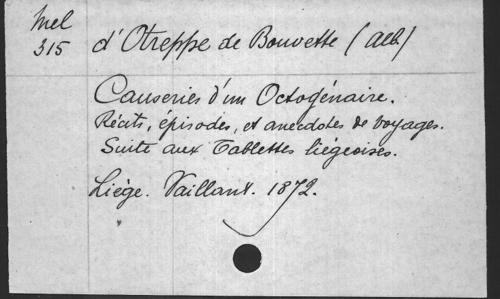 Mel
315
d'Otreppe de Bouvette (Alb)
Causeries d'un Octogénaire.
Récits, épisodes, et anecdotes de voyages.
Suite aux Tablettes liégeoises.
Liège. Vaillant. 1872.